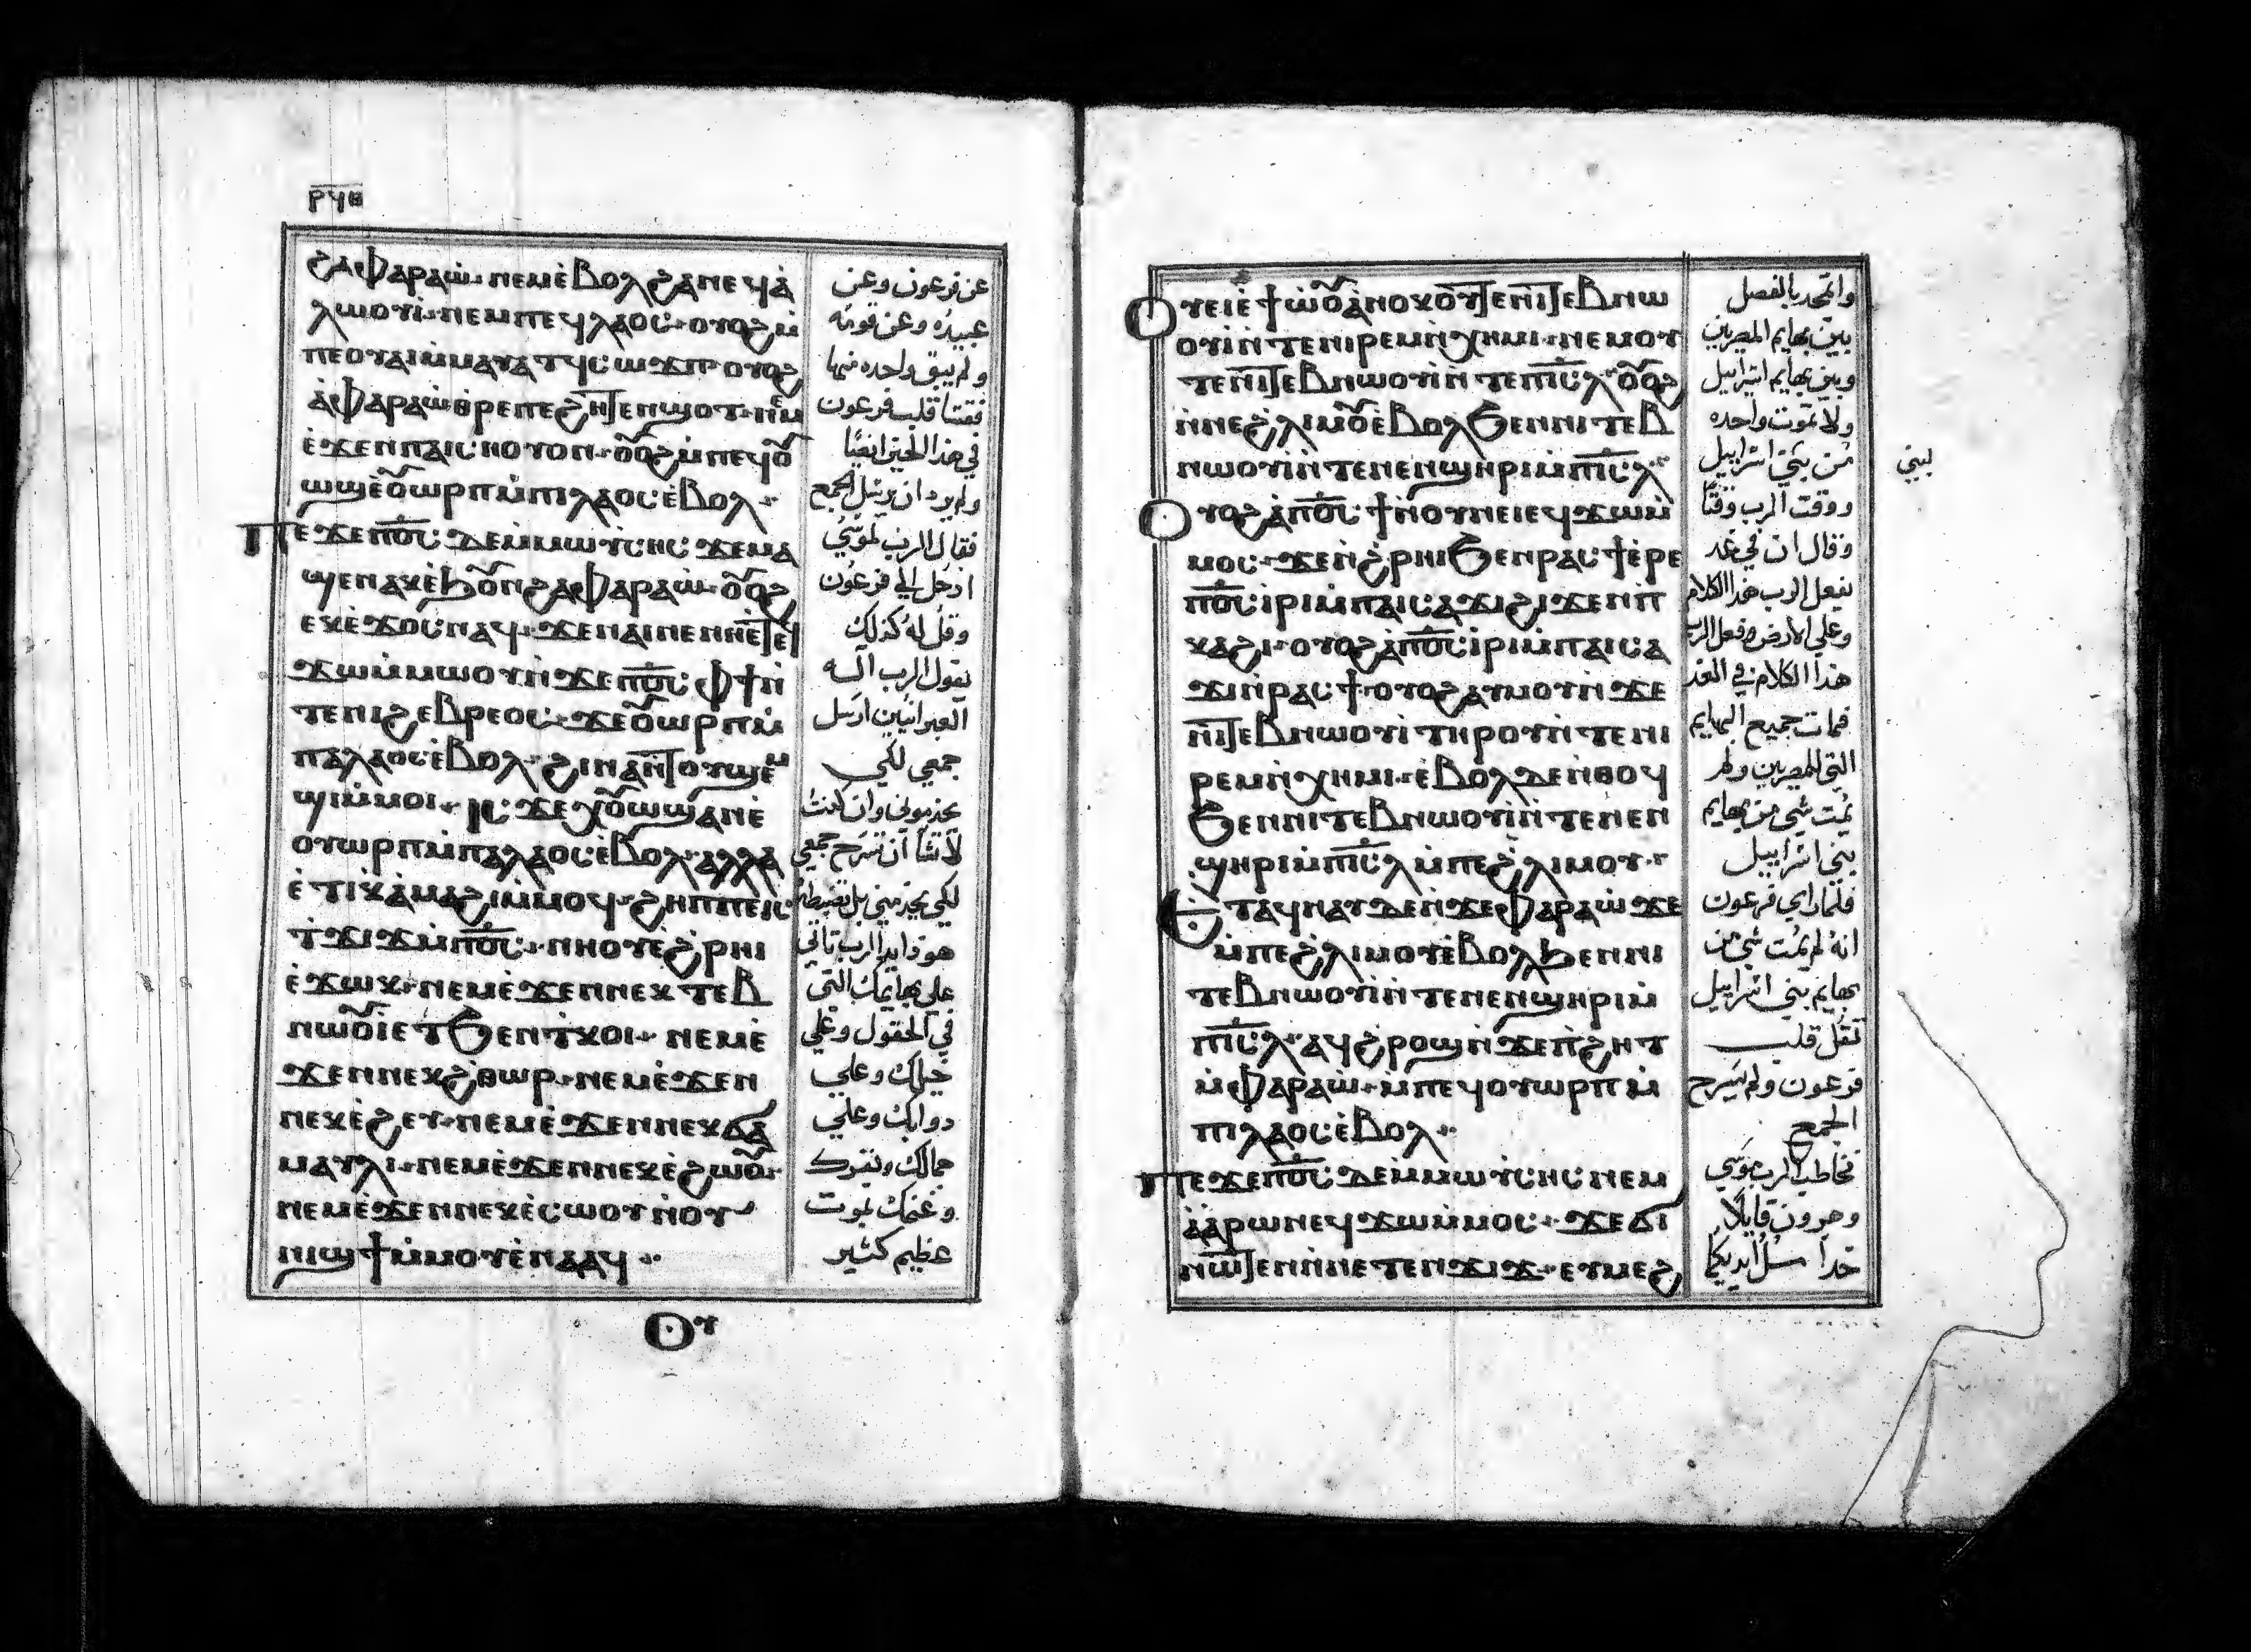 ⲣϥⲏ
ϩⲁⲫⲁⲣⲁⲱ̀ ⲛⲉⲙⲉ̀ⲃⲟⲗϩⲁⲛⲉϥⲁ̀
ⲗⲱⲟⲩⲓ̀ ⲛⲉⲙⲡⲉϥⲗⲁⲟⲥ ⲟⲩⲟϩⲙ̀
ⲡⲉⲟⲩⲁⲓⲙ̀ⲙⲁⲩⲁⲧϥⲥⲱϫⲡ ⲟⲩⲟϩ
ⲁ̀ⲫⲁⲣⲁⲱ̀ⲑⲣⲉⲡⲉϥϩⲏⲧⲉⲛϣⲟⲧ
ⲉ̀ϫⲉⲛⲡⲁⲓⲥⲏⲟⲩⲟⲛ ⲟⲟϩⲙ̀ⲡⲉϥⲟ
ⲱϣⲉ̀ⲟⲱⲣⲡⲙ̀ⲡⲓⲗⲁⲟⲥⲉ̀ⲃⲟⲗ
ⲡⲉϫⲉⲡⲟ̅ⲥ̅ ⲇⲉⲙ̀ⲙⲱⲩ̀ⲥⲏⲥ ϫⲉⲙⲁ
ϣⲉⲛⲁⲕⲉ̀ϧⲟⲛϩⲁⲫⲁⲣⲁⲱ̀ ⲟⲟϩ
ⲉⲕⲉ̀ϫⲟⲥⲛⲁϥ ϫⲉⲛⲁⲓⲛⲉⲛⲏⲉ̀ⲧⲉϥ
ϫⲱⲙ̀ⲙⲱⲟⲩⲛ̀ϫⲉⲡⲟ̅ⲥ̅ ⲫϯⲛ̀
ⲧⲉⲛⲓϩⲉⲃⲣⲉⲟⲥ ϫⲉⲟⲱⲣⲡⲙ̀
ⲡⲁⲗⲁⲟⲥⲉ̀ⲃⲟⲗ ϩⲓⲛⲁⲛ̀ⲧⲟⲩϣⲉⲙ
ϣⲓⲙ̀ⲙⲟⲓ ⲓⲥϫⲉⲭⲟⲱϣⲁⲛⲉ̀
ⲟⲩⲱⲣⲡⲙ̀ⲡⲁⲗⲁⲟⲥⲉ̀ⲃⲟⲗ ⲁⲗⲗⲁ
ⲉ̀ⲧⲓⲕⲁ̀ⲙⲁϩⲓⲙ̀ⲙⲟϥ ϩⲏⲡⲡⲉⲓⲥ
ⲧϫⲓϫⲙ̀ⲡⲟ̅ⲥ̅ ⲛⲏⲟⲩⲉ̀ϩⲣⲏⲓ
ⲉ̀ϫⲱⲕ ⲛⲉⲙⲉ̀ϫⲉⲛⲛⲉⲕⲧⲉⲃ
ⲛⲱⲟⲓⲉⲧϧⲉⲛⲧⲕⲟⲓ ⲛⲉⲙⲉ̀
ϫⲉⲛⲛⲉⲕϩ̀ⲑⲱⲣ ⲛⲉⲙⲉ̀ϫⲉⲛ
ⲛⲉⲕⲉ̀ϩⲉⲩ ⲛⲉⲙⲉ̀ϫⲉⲛⲛⲉⲕϭⲁ
ⲙⲁⲩⲗⲓ ⲛⲉⲙⲉ̀ϫⲉⲛⲛⲉⲕⲉ̀ϩⲱⲟ
ⲛⲉⲙⲉ̀ϫⲉⲛⲛⲉⲕⲉ̀ⲥⲱⲟⲩ ⲛ̀ⲟⲩ
ⲛⲓϣϯⲙ̀ⲙⲟⲩⲉ̀ⲛⲁⲁϥ
عن فرعون وعن
عبيده وعن قومه
ولم يبق واحده منها
فقسّا قلب فرعون
في هذا الحين ايضًا
ولم يرد ان يرسل الجمع
فقال الرب لموسي
ادخل الي فرعون
وقل له كذلك
يقول الرب اله
العبرانيين ارسل
جمعي لكي
يخدموني وان كنت
لا تشأ ان تسرح جمعي
لكي يخدمني بل تضبطه
هوذا يد الرب تاتي
علي بهايمك التي
في الحقول وعلي
خيلك وعلي
دوابك وعلي
جمالك وبقرك
وغنمك بموت
عظيم كثير
ⲟⲩ
ⲟⲩⲉⲓⲉ̀ϯⲱ̀ⲟⲁ̀ⲛⲟⲕⲟⲩⲧⲉⲛ̀ⲛⲓⲧⲉⲃⲛⲱ
ⲟⲩⲓ̀ⲛ̀ⲧⲉⲛⲓⲣⲉⲙⲛ̀ⲭⲏⲙⲓ ⲛⲉⲙⲟⲩ
ⲧⲉⲛ̀ⲛⲓⲧⲉⲃⲛⲱⲟⲩⲓ̀ⲛ̀ⲧⲉⲡⲓ̅ⲥ̅ⲗ̅ ⲟⲟϩ
ⲛ̀ⲛⲉϩ̀ⲗⲓⲙⲟⲉ̀ⲃⲟⲗϧⲉⲛⲛⲓⲧⲉⲃ
ⲛⲱⲟⲩⲓ̀ⲛ̀ⲧⲉⲛⲉⲛϣⲏⲣⲓⲙ̀ⲡⲓ̅ⲥ̅ⲗ̅
ⲟⲩⲟϩⲁ̀ⲡⲟ̅ⲥ̅ϯⲛ̀ⲟⲩⲛⲉⲓⲉϥϫⲱⲙ̀
ⲙⲟⲥ ϫⲉⲛ̀ϩ̀ⲣⲏⲓϧⲉⲛⲣⲁⲥϯⲉ̀ⲣⲉ
ⲡⲟ̅ⲥ̅ⲓ̀ⲣⲓⲙ̀ⲡⲁⲓⲥⲁϫⲓϩⲓϫⲉⲛⲡ
ⲕⲁϩⲓ ⲟⲩⲟϩⲁ̀ⲡⲟ̅ⲥ̅ⲓ̀ⲣⲓⲙ̀ⲡⲁⲓⲥⲁ
ϫⲓⲛ̀ⲣⲁⲥϯ ⲟⲩⲟϩⲁⲩⲙⲟⲩⲛ̀ϫⲉ
ⲛⲓⲧⲉⲃⲛⲱⲟⲩⲓ̀ⲧⲏⲣⲟⲩⲛ̀ⲧⲉⲛⲓ
ⲣⲉⲙⲛ̀ⲭⲏⲙⲓ ⲉ̀ⲃⲟⲗⲇⲉⲛ̀ⲑⲟϥ
ϧⲉⲛⲛⲓⲧⲉⲃⲛⲱⲟⲩⲓ̀ⲛ̀ⲧⲉⲛⲉⲛ
ϣⲏⲣⲓⲙ̀ⲡⲓ̅ⲥ̅ⲗ̅ⲙ̀ⲡⲉϩ̀ⲗⲓⲙⲟⲩ
ⲉⲧⲁϥⲛⲁⲩⲇⲉⲛ̀ϫⲉⲫⲁⲣⲁⲱ̀ϫⲉ
ⲙ̀ⲡⲉϩ̀ⲗⲓⲙⲟⲩⲉ̀ⲃⲟⲗϧⲉⲛⲛⲓ
ⲧⲉⲃⲛⲱⲟⲩⲓ̀ⲛ̀ⲧⲉⲛⲉⲛϣⲏⲣⲓⲙ̀
ⲡⲓ̅ⲥ̅ⲗ̅ ⲁϥϩ̀ⲣⲟϣⲛ̀ϫⲉⲡ̀ϩⲏⲧ
ⲙ̀ⲫⲁⲣⲁⲱ̀ ⲙ̀ⲡⲉϥⲟⲩⲱⲣⲡⲙ̀
ⲡⲓⲗⲁⲟⲥⲉ̀ⲃⲟⲗ
ⲡⲉϫⲉⲡⲟ̅ⲥ̅ ⲇⲉⲙ̀ⲙⲱⲩ̀ⲥⲏⲥ ⲛⲉⲙ
ⲁ̀ⲁ̀ⲣⲱⲛⲉϥϫⲱⲙ̀ⲙⲟⲥ ϫⲉϭⲓ
ⲛⲱⲧⲉⲛⲛ̀ⲛⲉⲧⲉⲛϫⲓϫ ⲉⲩⲙⲉϩ
بين بهايم المصريين
وبين بهايم اسراييل
ولا تموت واحده
من بني اسراييل
لبني
ووقت الرب وقتًا
وقال ان في غد
يفعل الرب هذا الكلام
وعلي الارض وفعل الرب
هذا الكلام في الغد
فمات جميع البهايم
التي للمصريين ولم
يمت شي من بهايم
بني اسراييل
فلما راي فرعون
انه لم يمت شي من
بهايم بني اسراييل
ثقل قلب
فرعون ولم يسرح
الجمع
فخاطب الرب موسي
وهرون قايلًا